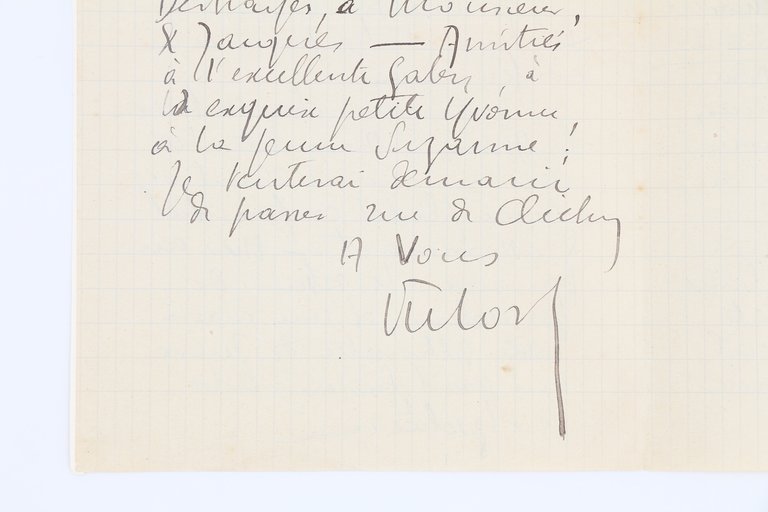 à Monsieur,
& Jacques — Amitiés
à l'excellente Gaby à
la exquise petite Yvonne,
à la jeune Suzanne ;
Je tenterai demain
de passer rue de Clichy
A Vous